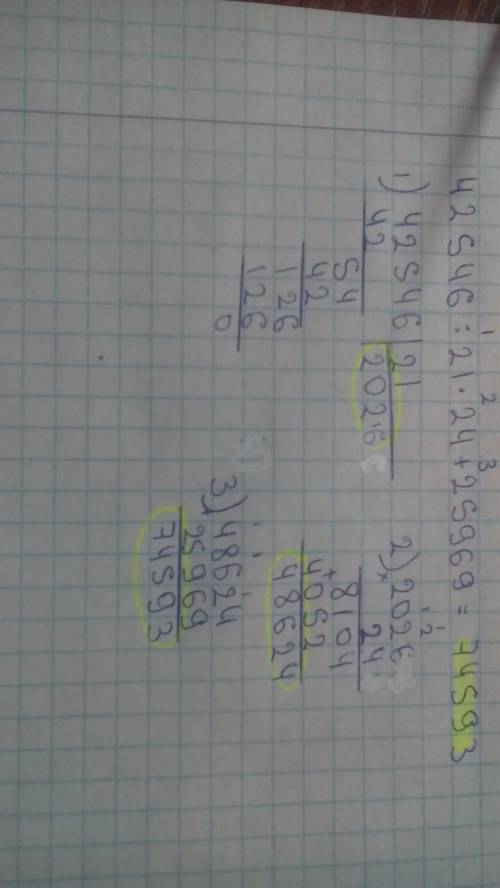 42546 : 21 · 24 + 25969 = 74593
1 2 3
1) 42546 | 21
42 2026
54
42
126
126
0
2) 2026
1 2
× 24
8104
+
4052
48624
3) 48624
+
1 1 1
25969
74593